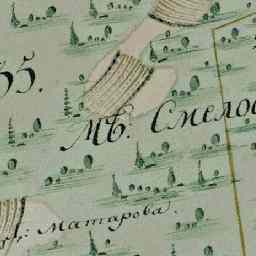 35.
Мѣ: Смело
Матарова.